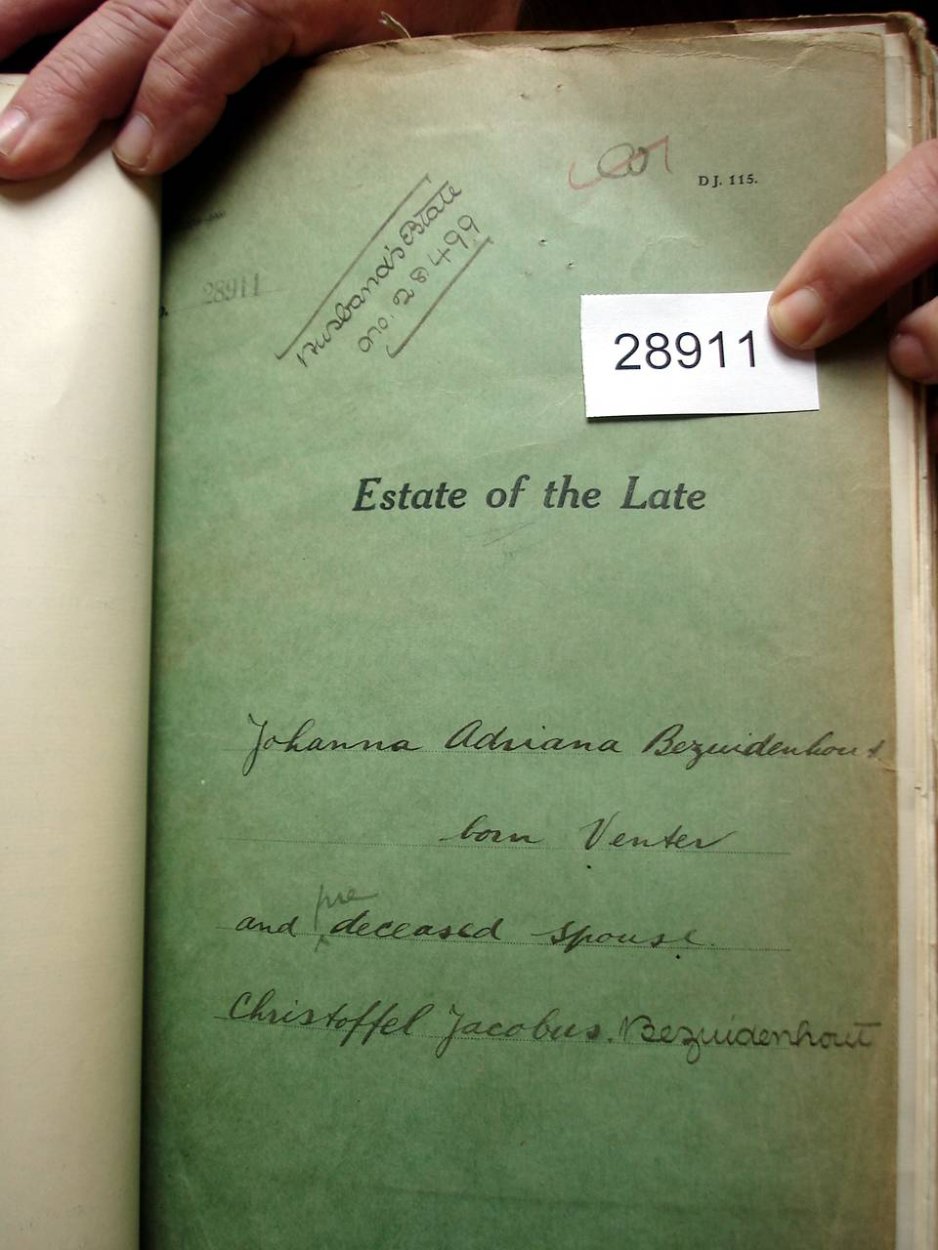 DJ. 115.
Husband's Estate
no. 28499
28911
28911
Estate of the Late
Johanna Adriana Bezuidenhout
born Venter
pre
and deceased spouse.
Christoffel Jacobus. Bezuidenhout